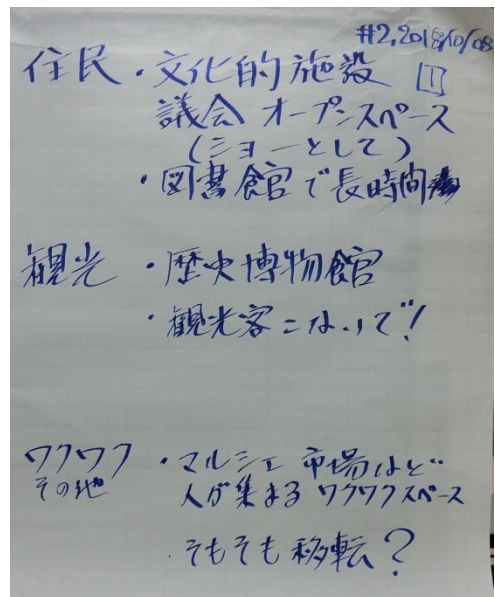 #2, 2018/10/08
住民・文化的施設 1
議会 オープンスペース
(ショーとして)
・図書館で長時間
観光・歴史博物館
・観光客こないで!
ワクワク・マルシェ 市場など
その他 人が集まる ワクワクスペース
・そもそも移転?